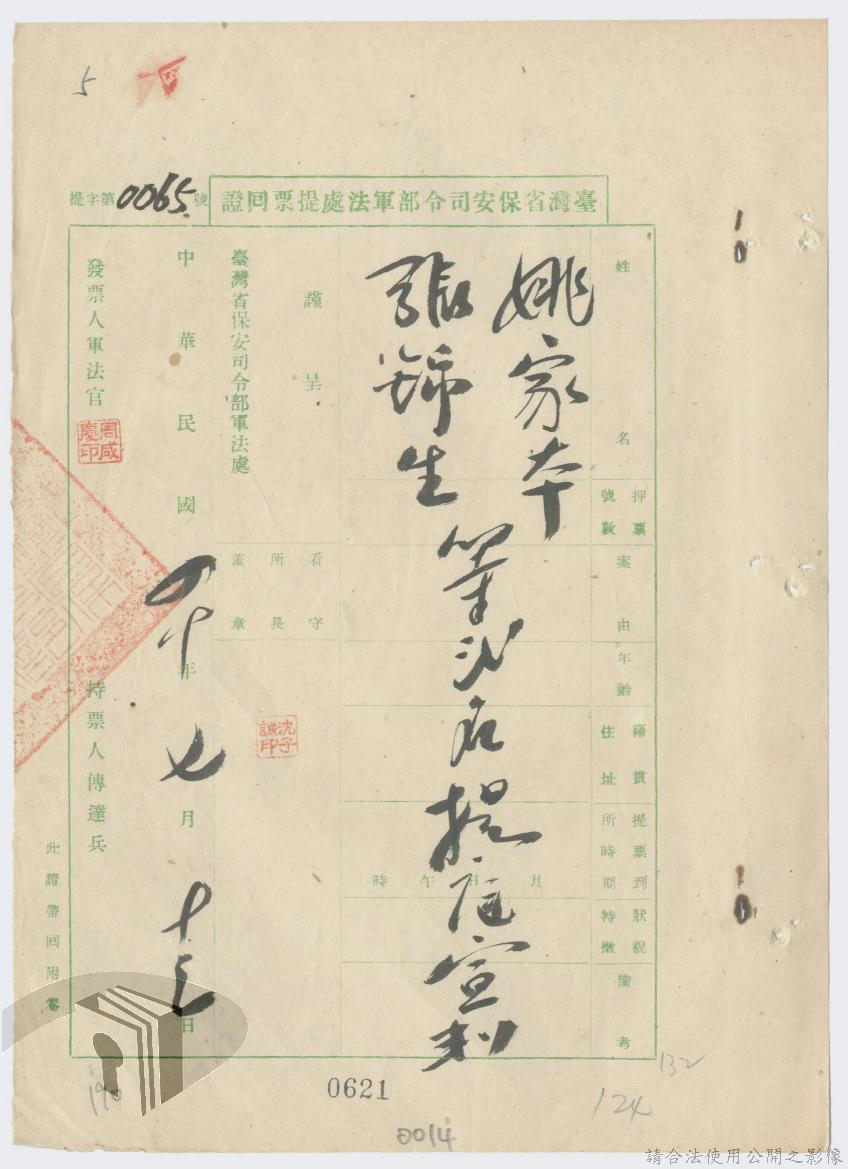 5
臺灣省保安司令部軍法處提票回證
提字第0065號
姓名
押票號數
案由
年齡
籍貫住址
提票到所時期
狀貌特徵
備考
姚家本
張錦生
等弍名提庭宣判
月 日 午 時
謹呈
臺灣省保安司令部軍法處
看守所長蓋章
沈子誠印
中華民國四十年七月十三日
發票人軍法官
周咸慶印
持票人傳達兵
此證帶回附卷
190
0621
124
132
0014
請合法使用公開之影像